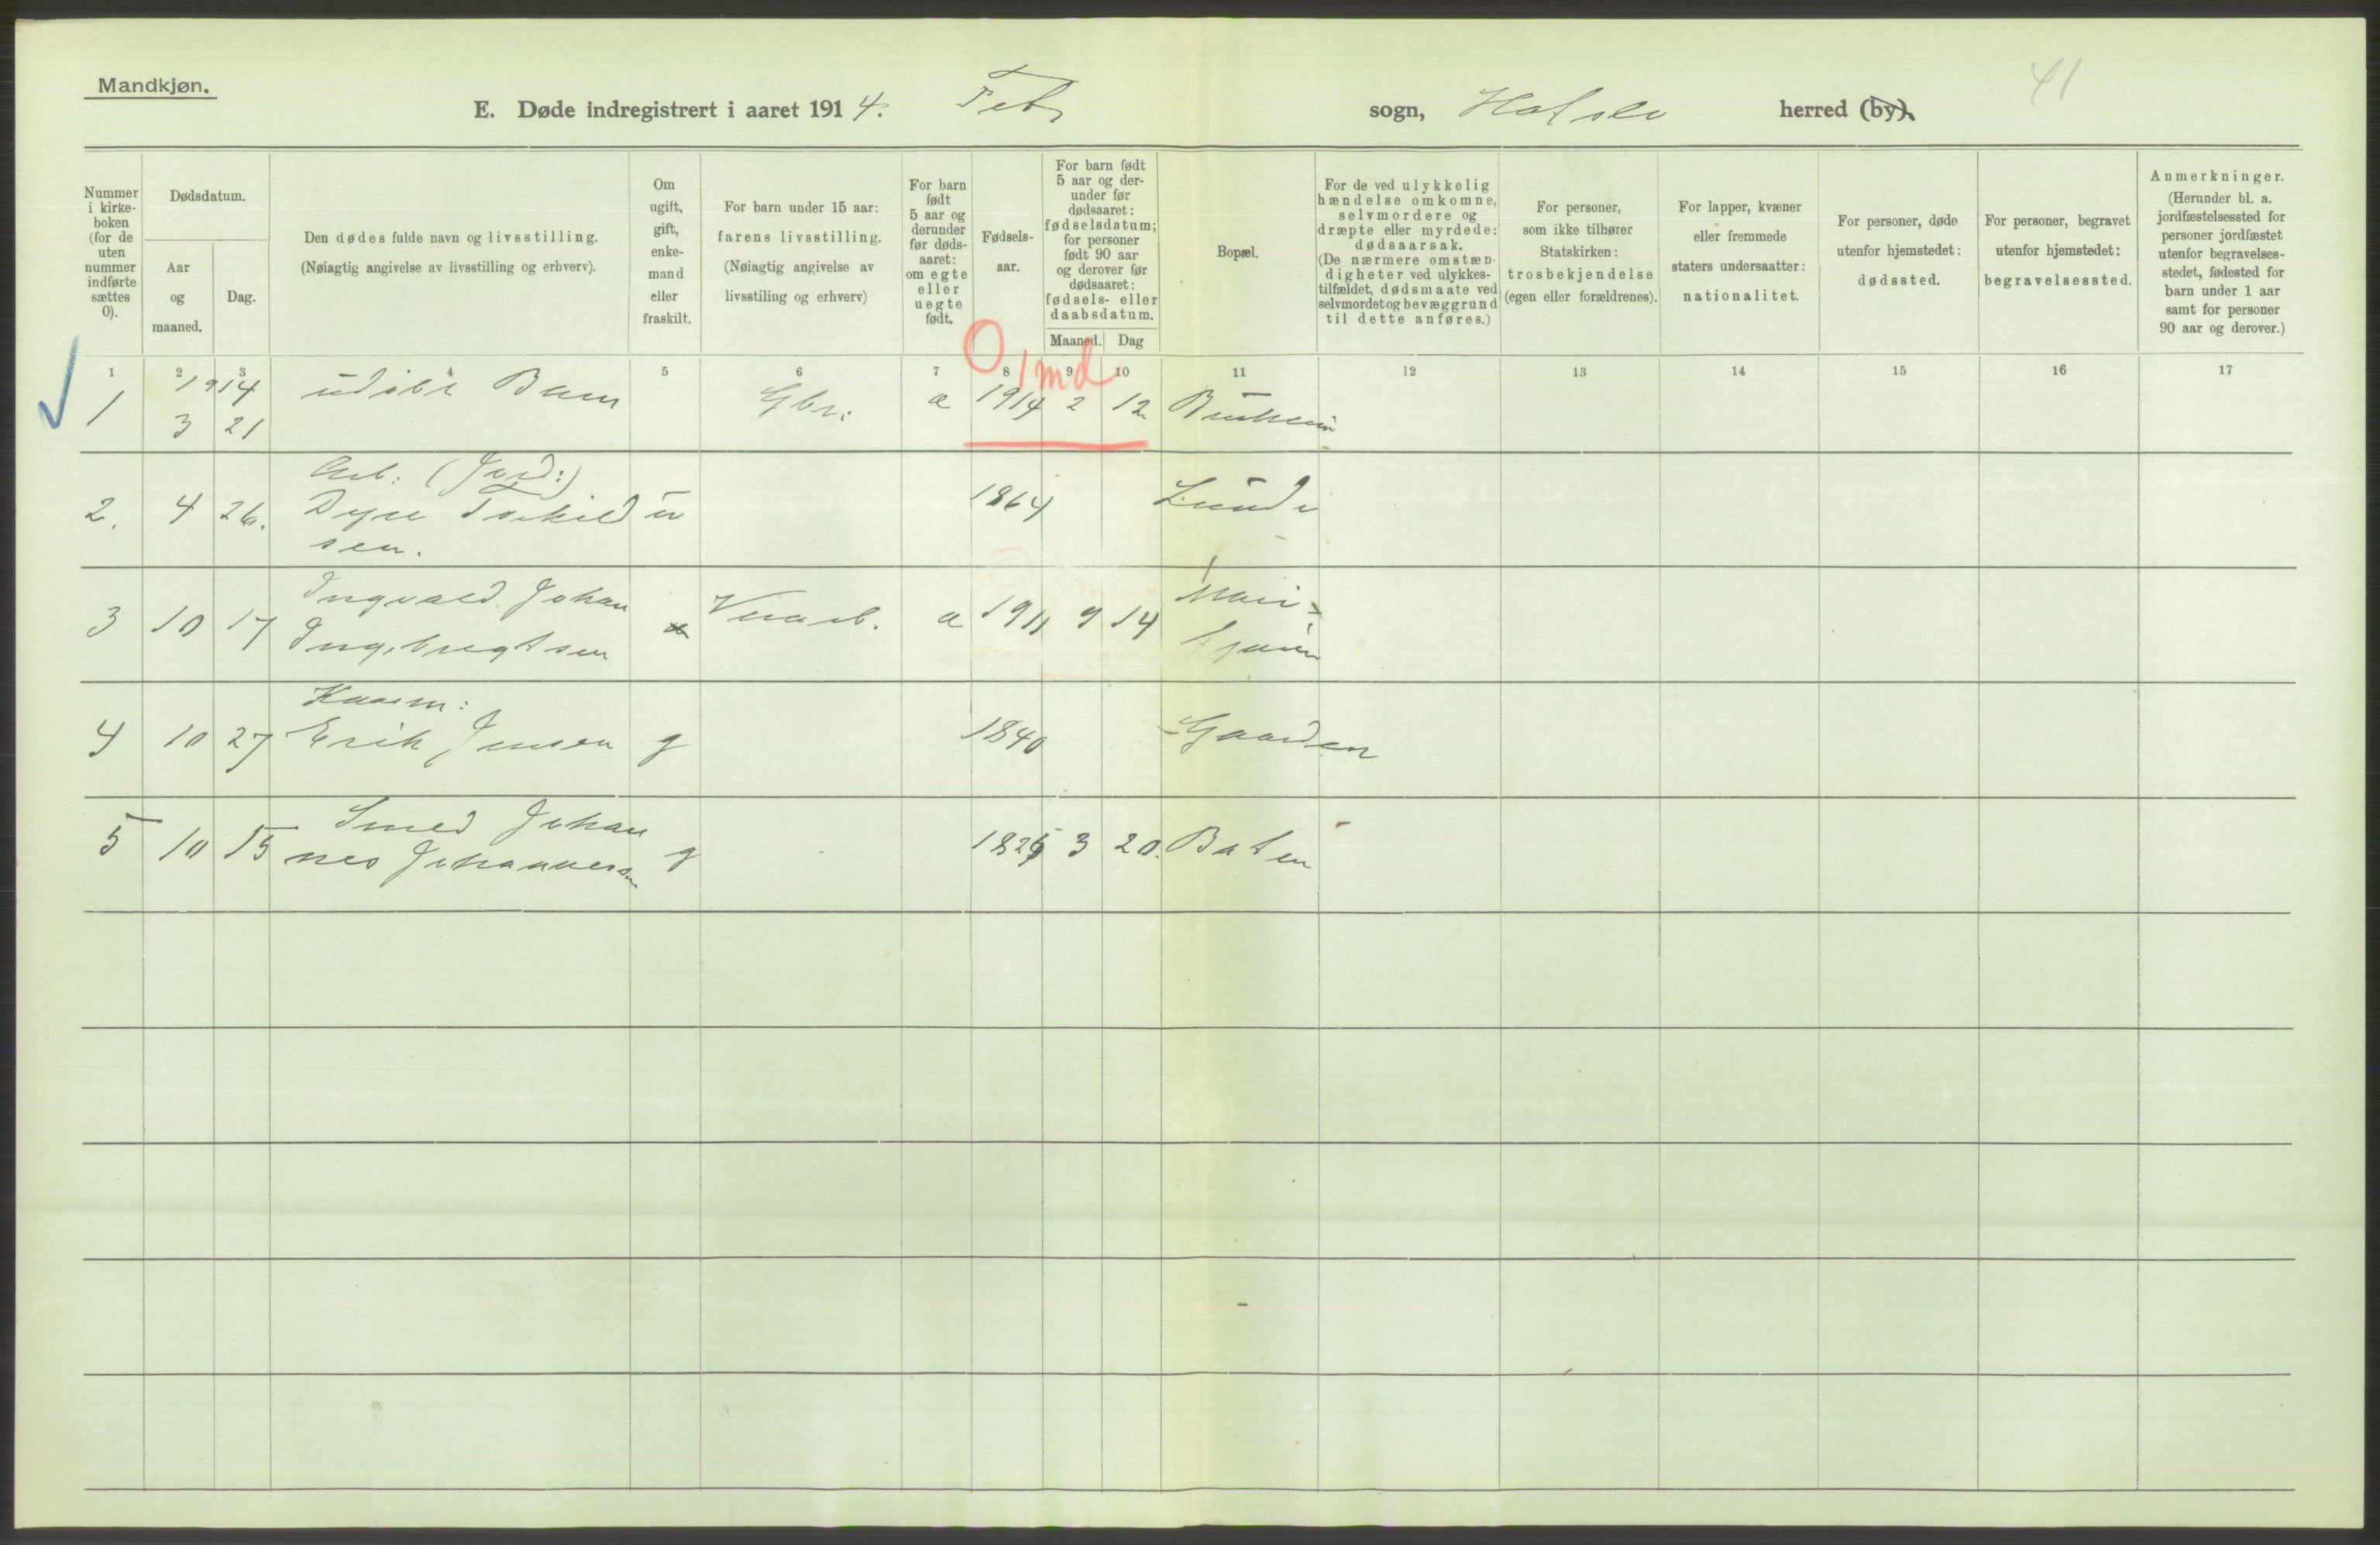 Mandkjøn.
41
E. Døde indregistrert i aaret 1914. Fet sogn, Hafslo herred (by).
Nummer i kirke-boken (for de uten nummer indførte sættes 0).
Dødsdatum.
Aar og maaned.
Dag.
Den dødes fulde navn og livsstilling.
(Nøiagtig angivelse av livsstilling og erhverv).
Om ugift, gift, enke-mand eller fraskilt.
For barn under 15 aar: farens livsstilling.
(Nøiagtig angivelse av livsstiling og erhverv)
For barn født 5 aar og derunder før døds-aaret: om egte eller uegte født.
Fødsels-aar.
For barn født 5 aar og der-under før dødsaaret: fødselsdatum; for personer født 90 aar og derover før dødsaaret: fødsels- eller daabsdatum.
Maaned. Dag
Bopæl.
For de ved ulykkelig hændelse omkomne, selvmordere og dræpte eller myrdede: dødsaarsak.
(De nærmere omstæn-digheter ved ulykkes-tilfældet, dødsmaate ved selvmordet og bevæggrund til dette anføres.)
For personer, som ikke tilhører Statskirken: trosbekjendelse (egen eller forældrenes).
For lapper, kvæner eller fremmede staters undersaatter: nationalitet.
For personer, døde utenfor hjemstedet: dødssted.
For personer, begravet utenfor hjemstedet: begravelsessted.
Anmerkninger.
(Herunder bl. a. jordfæstelsessted for personer jordfæstet utenfor begravelses-stedet, fødested for barn under 1 aar samt for personer 90 aar og derover.)
1 2 3 4 5 6 7 8 9 10 11 12 13 14 15 16 17
0 1 md
1914
1 3 21 udøbt Barn Gbr. a 1914 2 12
Arb: (Jord:)
2. 4 26. Torkild u 1864 Lunde
sen.
Ingvald Johan
3 10 17 Ingebregtsen a 1911 9 14
Kaarm:
4 10 27 Erik Jensen g 1840 Gaarden
Smed Johan
5 10 15 nes Johannessen g 182 3 20.